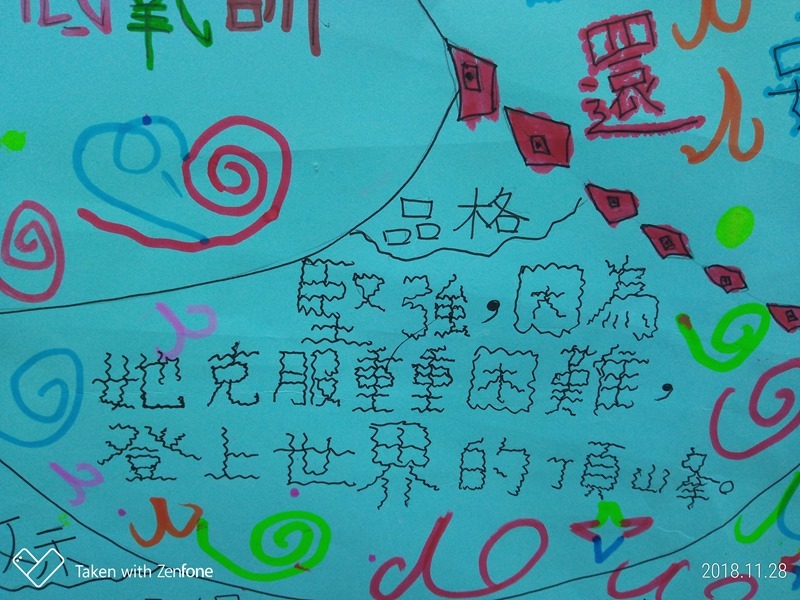 低氧訓
還
品格
堅強,因為
她克服重重困難,
登上世界的頂峰。
Taken with Zenfone
2018.11.28